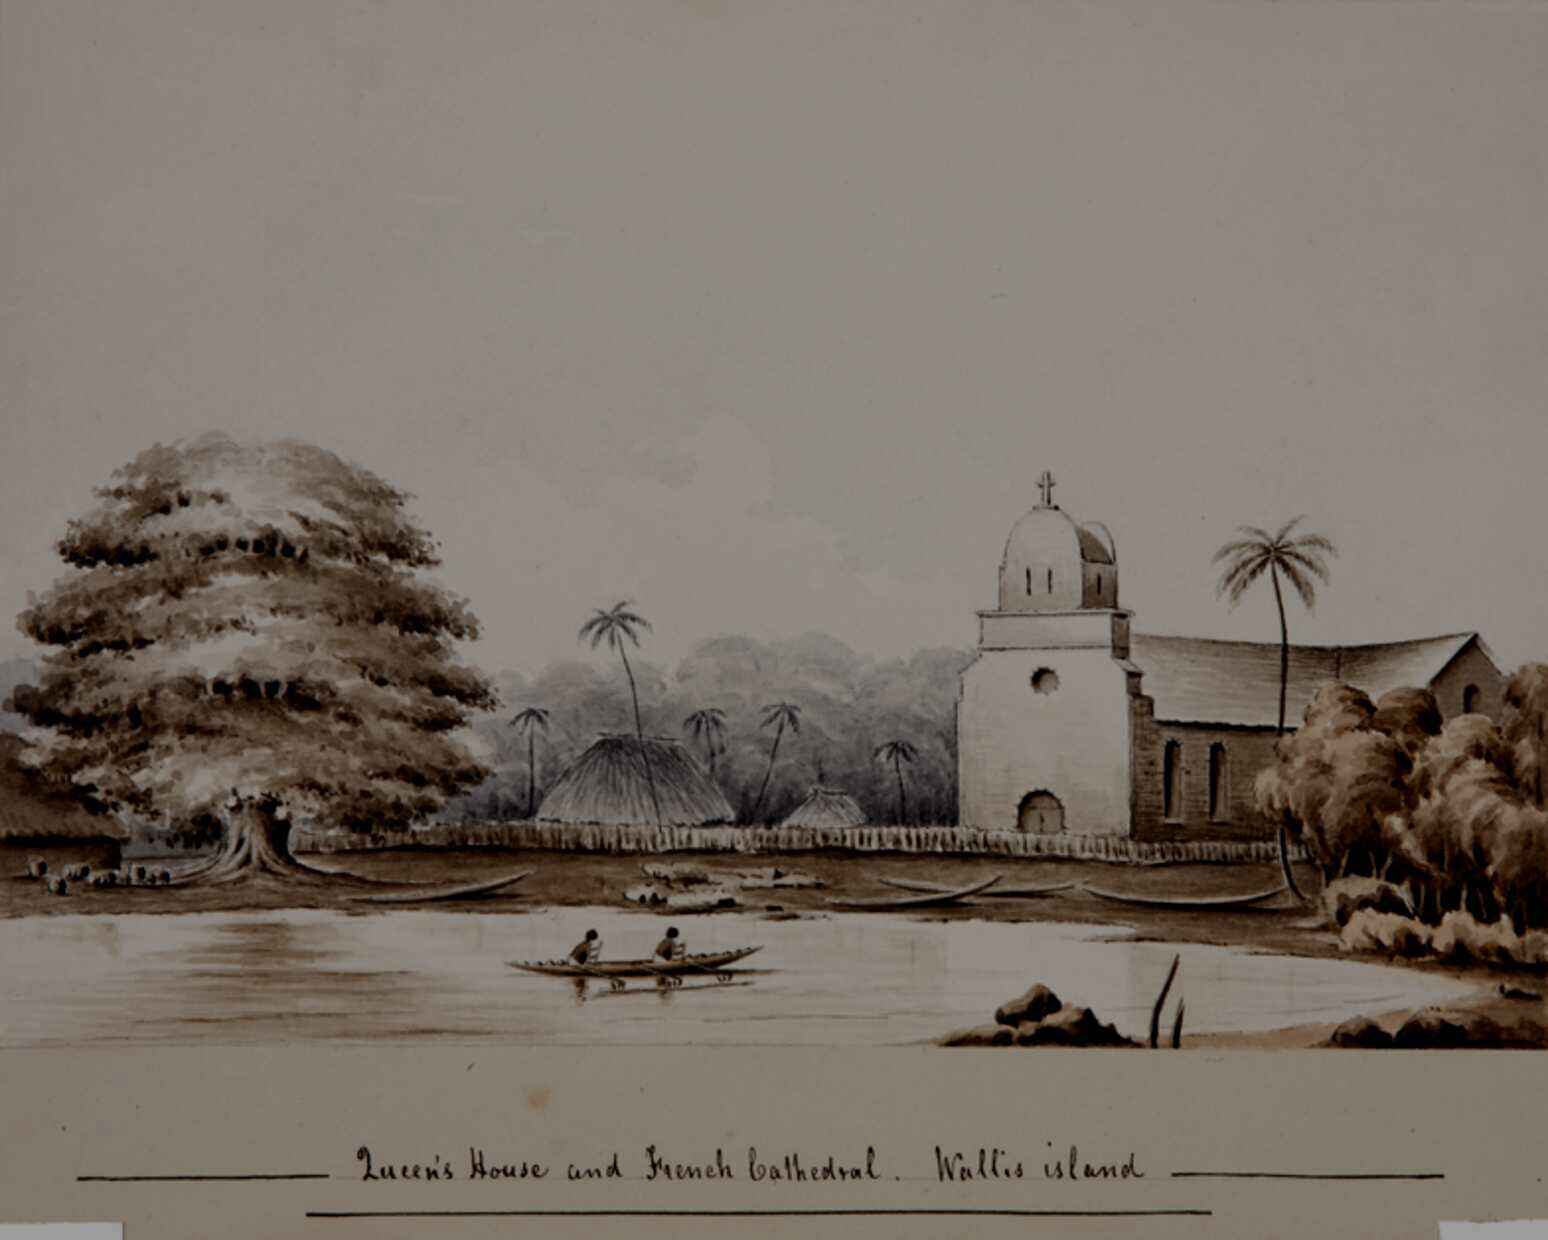 Queen's House and French Cathedral. Wallis island